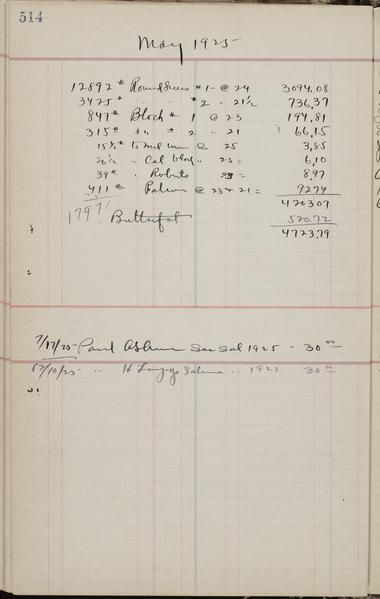 514
May 1925
12892 # Round Swiss # 1 - @ 24 3094.08
3425 " " " # 2 " 21½ 736,37
847 # Block # 1 @ 23 194.81
315 # " " 2 " 21 66,15
15½ # to @ 25 3,85
26½ " Cal " 23 = 6,10
39 # " Roberts 23 = 8,97
411 # @ 23 & 21 = 92.74
4203 07
1797 Butterfat 520.72
4723.79
7/17/25 - Paid Sec Sal 1925 - 30 00
/10/25 " " H 1925 30 00